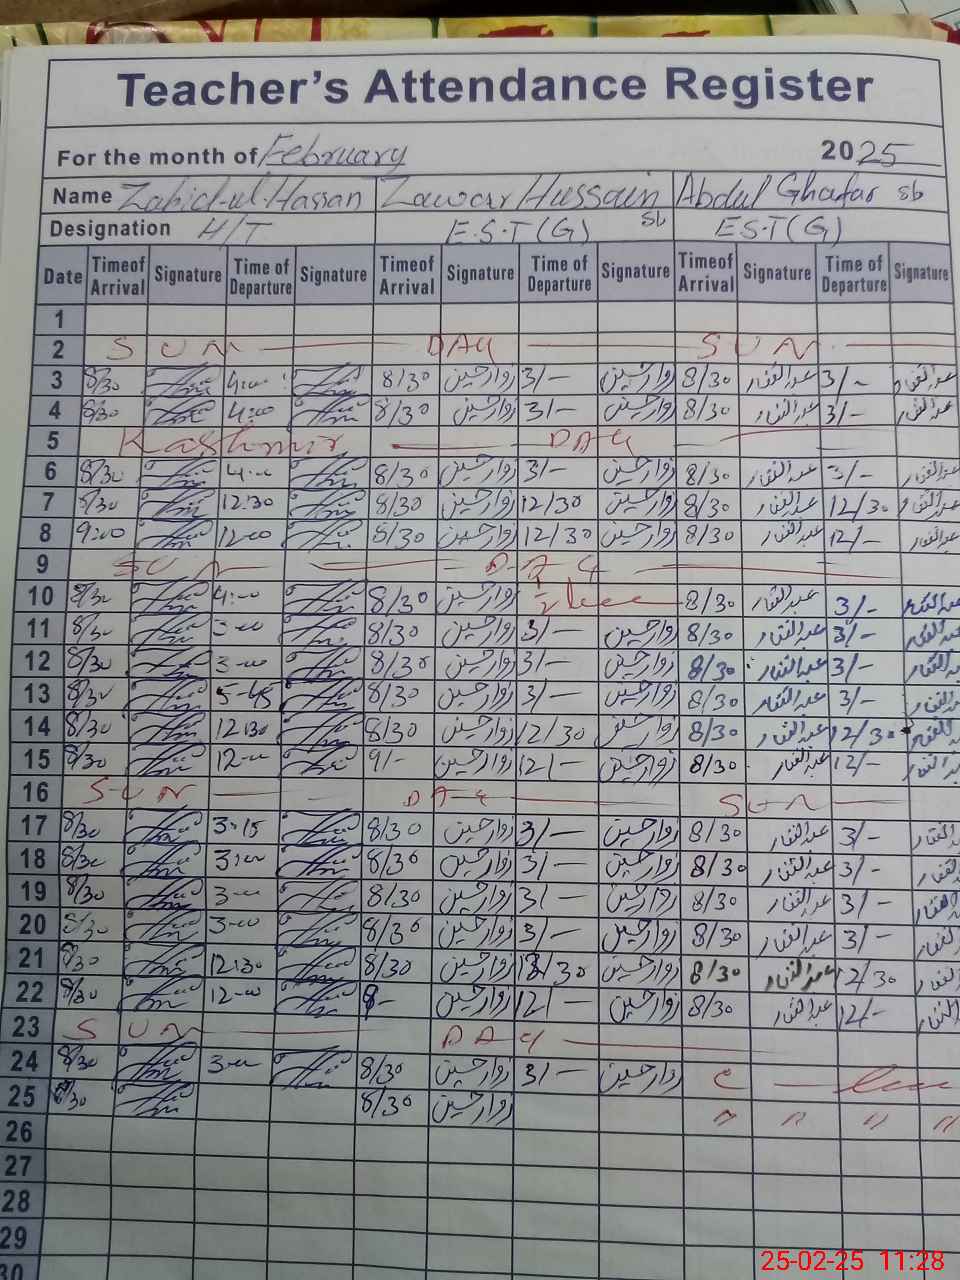 Teacher's Attendance Register
For the month of February 2025
Name Zahid-ul-Hassan Zawar Hussain Sb Abdul Ghafar Sb
Designation H/T E.S.T (G) E.S.T (G)
Date Timeof Arrival Signature Time of Departure Signature Timeof Arrival Signature Time of Departure Signature Timeof Arrival Signature Time of Departure Signature
1
2 SUN DAY SUN
3 8/30 4:00 8/30 زوار حسین 3/- زوار حسین 8/30 عبدالغفار 3/- عبدالغفار
4 8/30 4:00 8/30 زوار حسین 3/- زوار حسین 8/30 عبدالغفار 3/- عبدالغفار
5 Kashmir DAY
6 8/30 4:00 8/30 زوار حسین 3/- زوار حسین 8/30 عبدالغفار 3/- عبدالغفار
7 8/30 12:30 8/30 زوار حسین 12/30 زوار حسین 8/30 عبدالغفار 12/30 عبدالغفار
8 9:00 12:00 8/30 زوار حسین 12/30 زوار حسین 8/30 عبدالغفار 12/- عبدالغفار
9 SUN DAY
10 8/30 4:00 8/30 زوار حسین 8/30 عبدالغفار 3/- عبدالغفار
11 8/30 3-00 8/30 زوار حسین 3/- زوار حسین 8/30 عبدالغفار 3/- عبدالغفار
12 8/30 3-00 8/30 زوار حسین 3/- زوار حسین 8/30 عبدالغفار 3/- عبدالغفار
13 8/30 5-45 8/30 زوار حسین 3/- زوار حسین 8/30 عبدالغفار 3/- عبدالغفار
14 8/30 12:30 8/30 زوار حسین 12/30 زوار حسین 8/30 عبدالغفار 12/30 عبدالغفار
15 8/30 12-00 9/- زوار حسین 12/- زوار حسین 8/30 عبدالغفار 12/- عبدالغفار
16 SUN DAY SUN
17 8/30 3-15 8/30 زوار حسین 3/- زوار حسین 8/30 عبدالغفار 3/- عبدالغفار
18 8/30 3:00 8/30 زوار حسین 3/- زوار حسین 8/30 عبدالغفار 3/- عبدالغفار
19 8/30 3-00 8/30 زوار حسین 3/- زوار حسین 8/30 عبدالغفار 3/- عبدالغفار
20 8/30 3-00 8/30 زوار حسین 3/- زوار حسین 8/30 عبدالغفار 3/- عبدالغفار
21 8/30 12:30 8/30 زوار حسین 12/30 زوار حسین 8/30 عبدالغفار 12/30 عبدالغفار
22 8/30 12-00 8- زوار حسین 12/- زوار حسین 8/30 عبدالغفار 12/- عبدالغفار
23 SUN DAY
24 8/30 3-00 8/30 زوار حسین 3/- زوار حسین C leave
25 8/30 8/30 زوار حسین " " " "
26
27
28
29
30
25-02-25 11:28